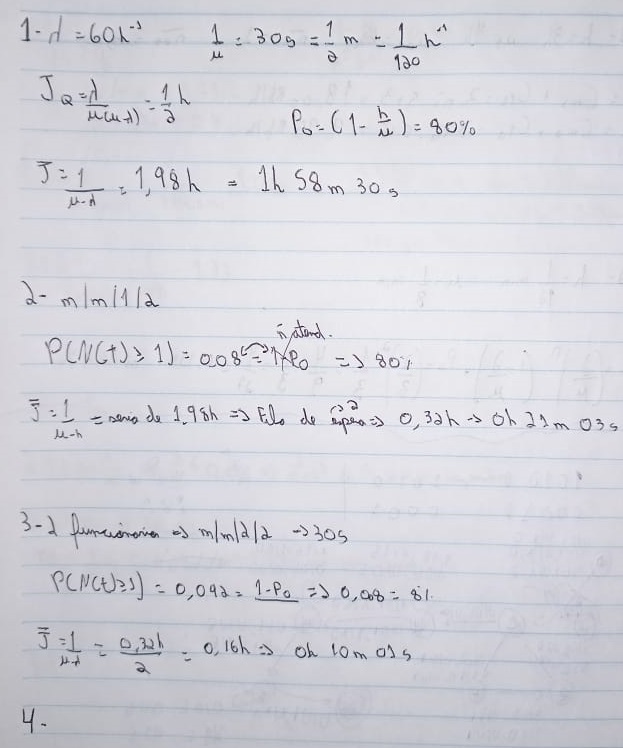 1- λ = 60h⁻¹ 1/μ = 30s = 1/2 m = 1/120 h⁻¹
JQ = λ/μ(μ-λ) = 1/2 h
P₀ = (1 - h/μ) = 80%
J = 1/μ-λ = 1,98h = 1h 58m 30s
2- m/m/1/2
ñ atend.
P(N(t) ≥ 1) = 0,08 = 1-P₀ => 80%
J̄ = 1/μ-h = seria de 1.98h => Fila de espera => 0,32h -> 0h 21m 03s
3- 2 funcionarios => m/m/2/2 -> 30s
P(N(t) ≥ 1) = 0,092 = 1-P₀ => 0,08 = 8%
J̄ = 1/μ-λ = 0,32h/2 = 0,16h => 0h 10m 01s
4-